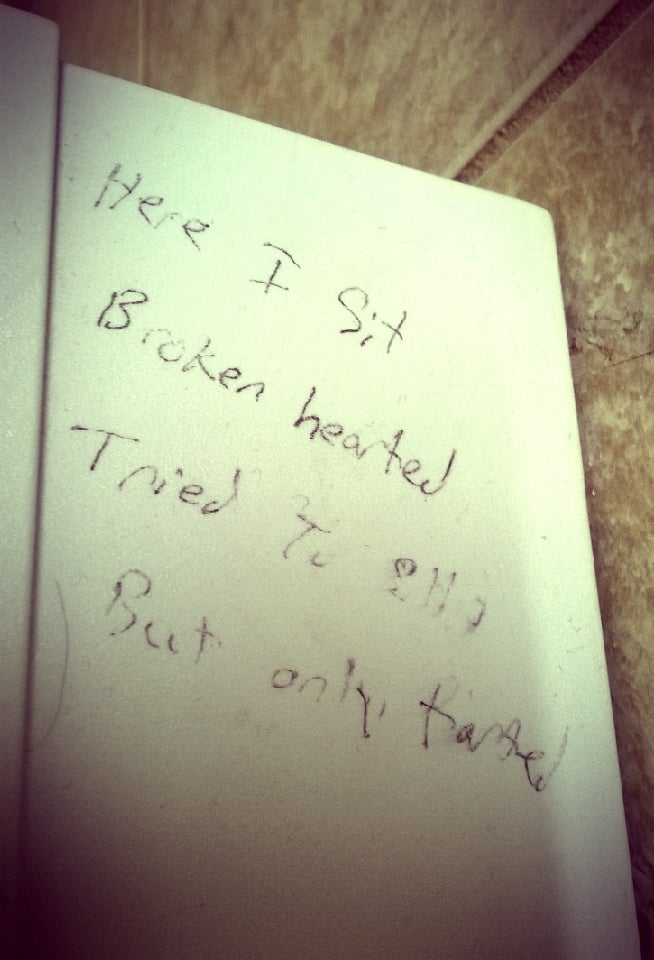 Here I Sit
Broken hearted
Tried To
But only, farted